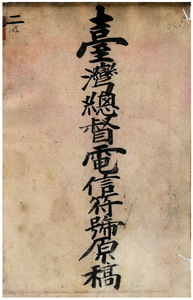 臺灣總督電信符號原稿
二